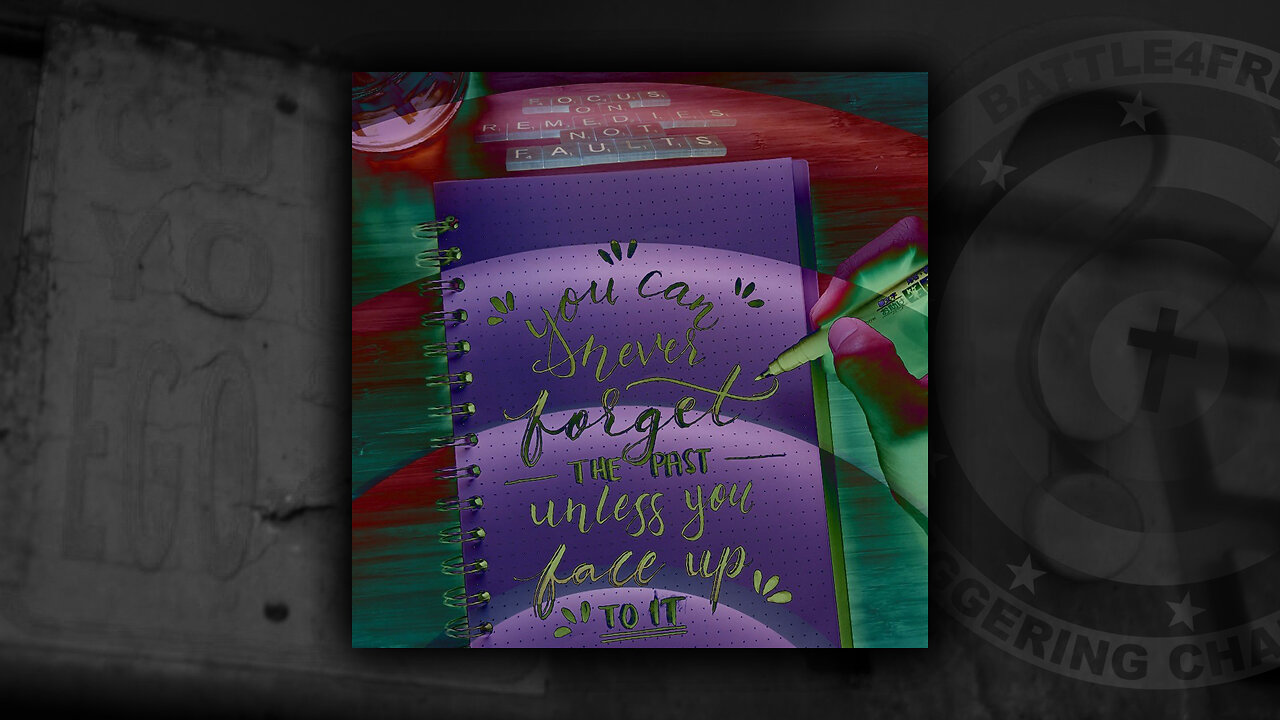 FOCUS
ON
REMEDIES
NOT
FAULTS
you can
never
forget
THE PAST
unless you
face up
TO IT
BATTLE4FR
GGERING CHA
YO
EGO